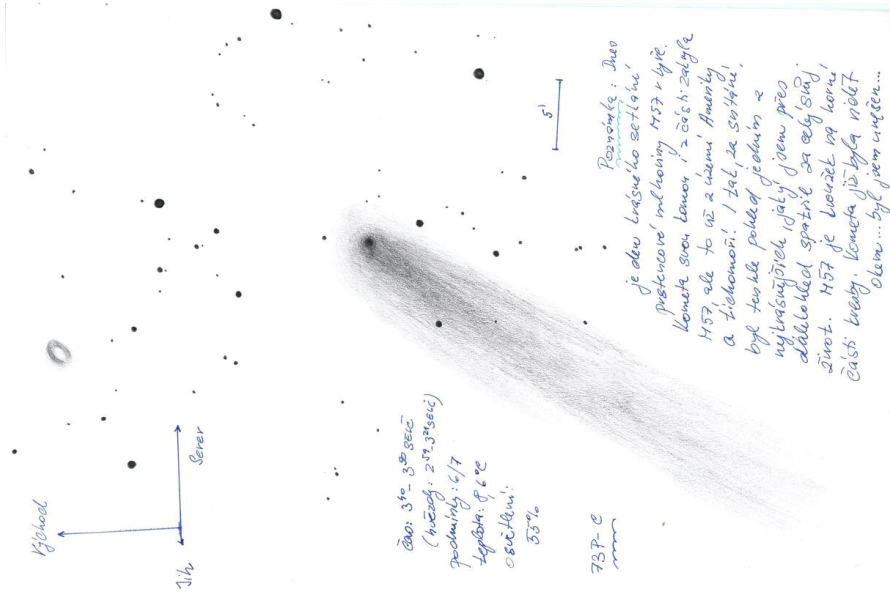 Východ
Jih
Sever
čas: 3⁴⁰ - 3⁵⁰ SELČ
(hvězdy: 2⁵⁹-3²¹ SELČ)
podmínky: 6/7
teplota: 8,6°C
osvětlení:
55%
73P-C
5'
Poznámka: Dnes
je den krásného setkání
prstencové mlhoviny M57 v Lyře.
Kometa svou komou i z části zakryla
M57, ale to už z území Ameriky
a tichomoří. I tak, za svítání,
byl tenhle pohled jedním z
nejkrásnějších, jaký jsem přes
dalekohled spatřil za celý svůj
život. M57 je kroužek na horní
části kresby. Kometa již byla vidět
okem... byl jsem unešen...